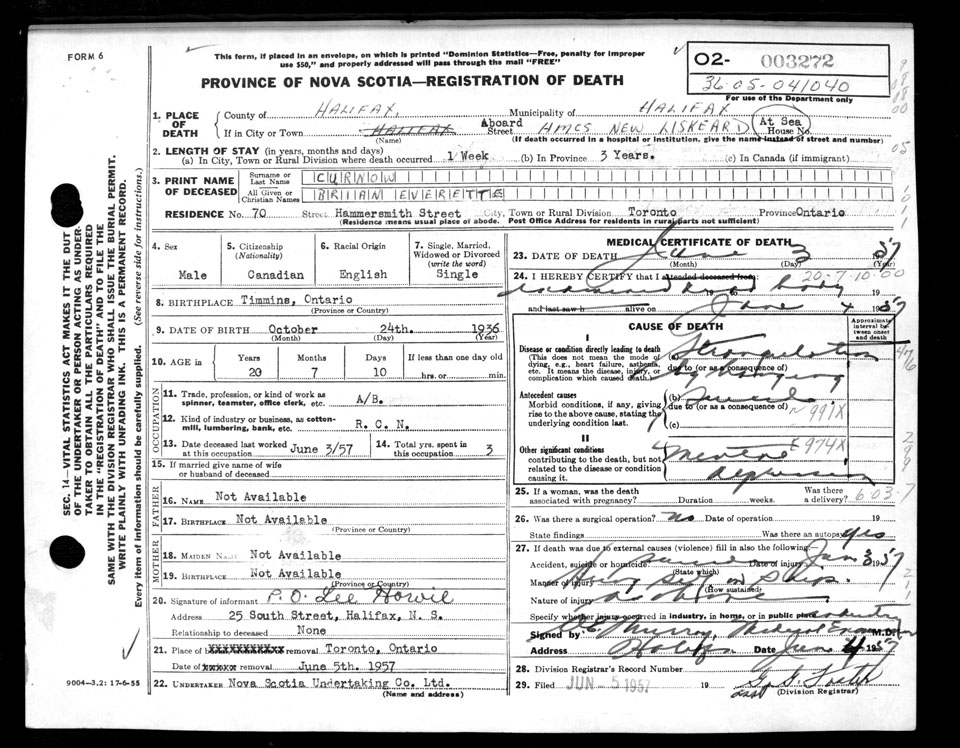 FORM 6
This form, if placed in an envelope, on which is printed "Dominion Statistics—Free, penalty for improper
use $50," and properly addressed will pass through the mail "FREE"
PROVINCE OF NOVA SCOTIA—REGISTRATION OF DEATH
02- 003272
36-05-041040
For use of the Department only
1. PLACE OF DEATH
County of HALIFAX, Municipality of HALIFAX
If in City or Town HALIFAX Aboard Street HMCS NEW LISKEARD At Sea House No.
(Name) (If death occurred in a hospital or institution, give the name instead of street and number)
2. LENGTH OF STAY (in years, months and days)
(a) In City, Town or Rural Division where death occurred 1 Week (b) In Province 3 Years. (c) In Canada (if immigrant)
3. PRINT NAME OF DECEASED
Surname or Last Name CURNOW
All Given or Christian Names BRIAN EVERETTE
RESIDENCE No. 70 Street Hammersmith Street City, Town or Rural Division Toronto Province Ontario
(Residence means usual place of abode. Post Office Address for residents in rural parts not sufficient)
4. Sex Male
5. Citizenship (Nationality) Canadian
6. Racial Origin English
7. Single, Married, Widowed or Divorced (write the word) Single
8. BIRTHPLACE Timmins, Ontario
(Province or Country)
9. DATE OF BIRTH October 24th. 1936
(Month) (Day) (Year)
10. AGE in Years Months Days If less than one day old
20 7 10 hrs. or min.
OCCUPATION
11. Trade, profession, or kind of work as spinner, teamster, office clerk, etc. A/B.
12. Kind of industry or business, as cotton-mill, lumbering, bank, etc. R. C. N.
13. Date deceased last worked at this occupation June 3/57
14. Total yrs. spent in this occupation 3
15. If married give name of wife or husband of deceased
FATHER
16. NAME Not Available
17. BIRTHPLACE Not Available
(Province or Country)
MOTHER
18. MAIDEN NAME Not Available
19. BIRTHPLACE Not Available
(Province or Country)
20. Signature of informant P.O. Lee Howie
Address 25 South Street, Halifax, N. S.
Relationship to deceased None
21. Place of removal Toronto, Ontario
Date of removal June 5th. 1957
22. UNDERTAKER Nova Scotia Undertaking Co. Ltd.
(Name and address)
9004-3.2: 17-6-55
SEC. 14—VITAL STATISTICS ACT MAKES IT THE DUTY
OF THE UNDERTAKER OR PERSON ACTING AS UNDER-
TAKER TO OBTAIN ALL THE PARTICULARS REQUIRED
IN THE "REGISTRATION OF DEATH" AND TO FILE THE
SAME WITH THE DIVISION REGISTRAR WHO SHALL ISSUE THE BURIAL PERMIT.
WRITE PLAINLY WITH UNFADING INK. THIS IS A PERMANENT RECORD.
Every item of information should be carefully supplied. (See reverse side for instructions).
MEDICAL CERTIFICATE OF DEATH
23. DATE OF DEATH June 3 57
(Month) (Day) (Year)
24. I HEREBY CERTIFY that I attended deceased from:
20-7-10-00
dead body 19
and last saw h alive on June 4 1957
CAUSE OF DEATH
Approximate interval between onset and death
I
Disease or condition directly leading to death
(This does not mean the mode of dying, e.g., heart failure, asthenia, etc. It means the disease, injury, or complication which caused death.)
(a) Strangulation
due to (or as a consequence of)
by hanging
Antecedent causes
Morbid conditions, if any, giving rise to the above cause, stating the underlying condition last.
(b)
due to (or as a consequence of)
N 991X
(c)
II
Other significant conditions
contributing to the death, but not related to the disease or condition causing it.
E 974X
Mental
depression
25. If a woman, was the death associated with pregnancy? Duration weeks. Was there a delivery?
6-03-7
26. Was there a surgical operation? No Date of operation 19
State findings Was there an autopsy? Yes
27. If death was due to external causes (violence) fill in also the following:
Accident, suicide or homicide? Date of injury June 3 1957
(State which)
Manner of injury
(How sustained)
Nature of injury as above
Specify whether injury occurred in industry, in home, or in public place industry
Signed by Murray, Medical Examiner M.D.
Address Halifax Date June 4 1957
28. Division Registrar's Record Number
29. Filed JUN 5 1957 19
(Division Registrar)